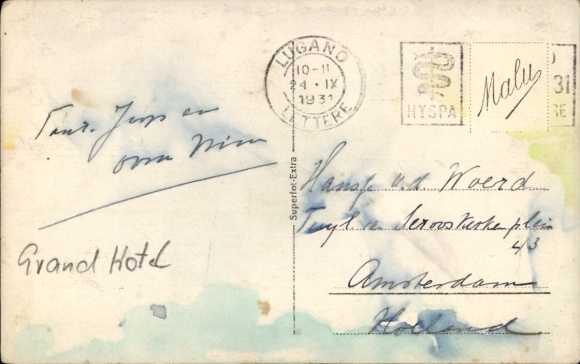 LUGANO
10-11
24·IX
1931
LETTERE
HYSPA
Malu
31
Jups en
Grand Hotel
Superfot-Extra
Hansje v.d. Woerd
Tuyl v. Serooskerkenplein
43
Amsterdam
Holland